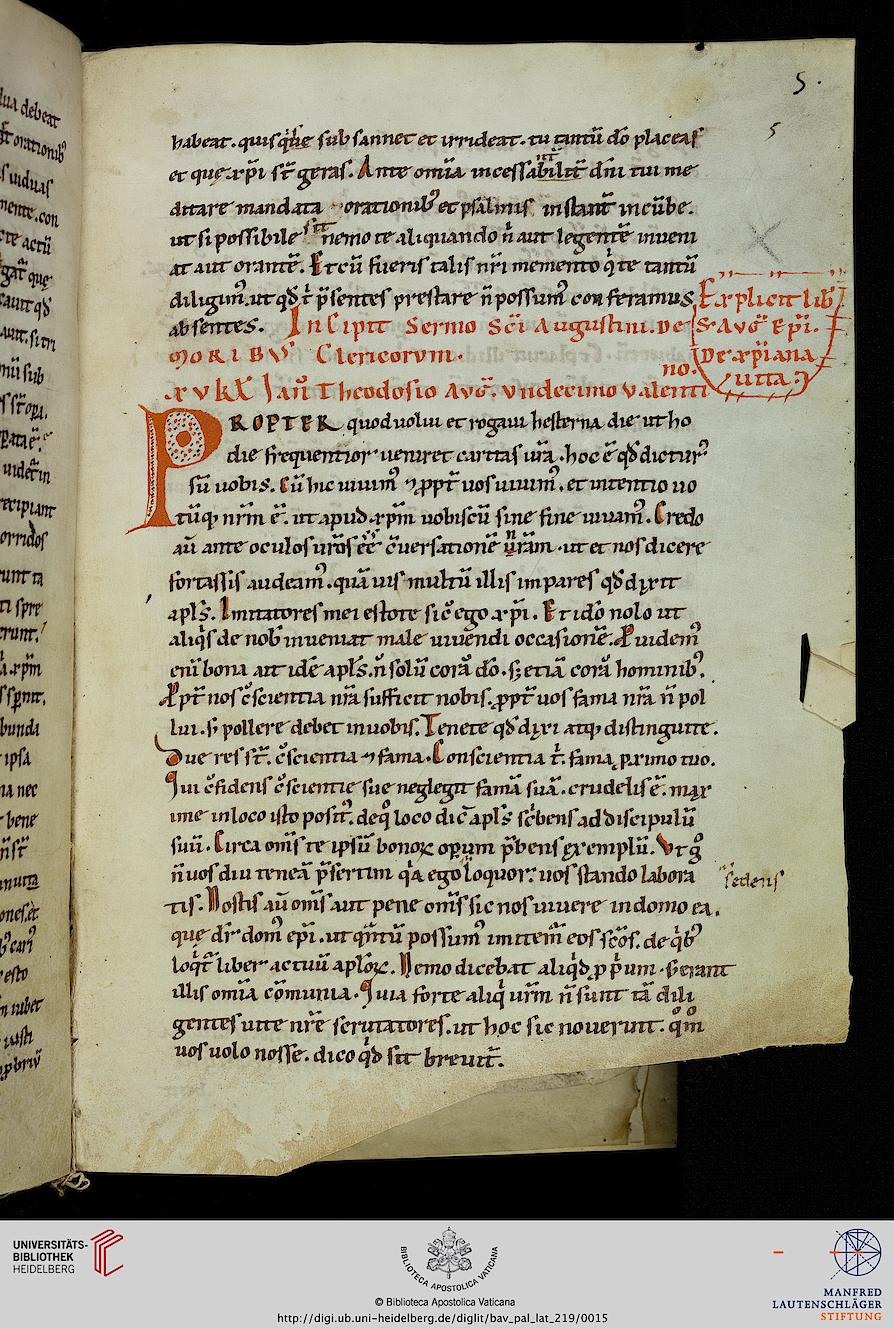 5.
5
habeat. quisq̃ue subsannet et irrideat. tu tantũ dõ placeas
et quę xp̃i st̃ geras. Ante om̃ia incessabilit̃ dñi tui me
ditare mandata orationib; et psalmis instant̃ incũbe.
ut si possibile sit nemo te aliquando ñ aut legentẽ inueni
at aut orantẽ. Et cũ fueris talis nr̃i memento q̃ te tantũ
diligim;. ut qd̃ t̃ p̃sentes prestare ñ possum; conferamus
absentes. Incipit Sermo Sc̃i Augustini. De
MORIBVS Clericorum.
Explicit lib̃
S. Aug̃ Ep̃i.
De xp̃iana
uita.
no.
xv kł Iañ Theodosio Aug̃. Vndecimo Valenti
PROPTER quod uolui et rogaui hesterna die ut ho
die frequentior ueniret caritas ur̃a. hoc ẽ qd̃ dictur;
sũ uobis. Cũ hic uiuim; ⁊ ꝓpt̃ uos uiuim;. et intentio uo
tũq; nr̃m ẽ. ut apud xp̃m uobiscũ sine fine uiuam;. Credo
aũ ante oculos ur̃os eẽ c̃uersationẽ nr̃am. ut et nos dicere
fortassis audeam;. quã uis multũ illis impares qd̃ dixit
apl̃s. Imitatores mei estote sic̃ ego xp̃i. Et idõ nolo ut
aliq̃s de nob̃ inueniat male uiuendi occasionẽ. Puidem;
eñi bona ait idẽ apl̃s. ñ solũ corã dõ. s; etiã corã hominib;.
Ppt̃ nos c̃scientia nr̃a sufficit nobis. ꝓpt̃ uos fama nr̃a ñ pol
lui. s; pollere debet in uobis. Tenete qd̃ dixi atq; distinguite.
Due res st̃. c̃scientia ⁊ fama. Conscientia t̃. fama p̱ximo tuo.
Qui c̃fidens c̃scientie sue neglegit famã suã. crudelis ẽ. max
ime in loco isto posit;. de q̊ loco dic̃ apl̃s sc̃bens ad discipulũ
suũ. Circa om̃s te ipsũ bonoꝝ opeꝝum p̃bens exemplũ. Vt g̊
ñ uos diu teneã p̃sertim q̃a ego loquor. uos stando labora
sedens
tis. Nostis aũ om̃s aut pene om̃s sic nos uiuere in domo ea.
que dr̃ dom; ep̃i. ut q̃ntũ possum; imitem̃ eos sc̃os. de q̃b;
loq̃t̃ liber actuũ apl̃oꝝ. Nemo dicebat aliq̃d ꝓpriũm. s; erant
illis om̃ia cõmunia. Quia forte aliq̃ ur̃m ñ sunt tã dili
gentes uite nr̃e scrutatores. ut hoc sic nouerint. q̊m
uos uolo nosse. dico q̃d sit breuit̃.
UNIVERSITÄTS-
BIBLIOTHEK
HEIDELBERG
BIBLIOTECA APOSTOLICA VATICANA
© Biblioteca Apostolica Vaticana
http://digi.ub.uni-heidelberg.de/diglit/bav_pal_lat_219/0015
MANFRED
LAUTENSCHLÄGER
STIFTUNG